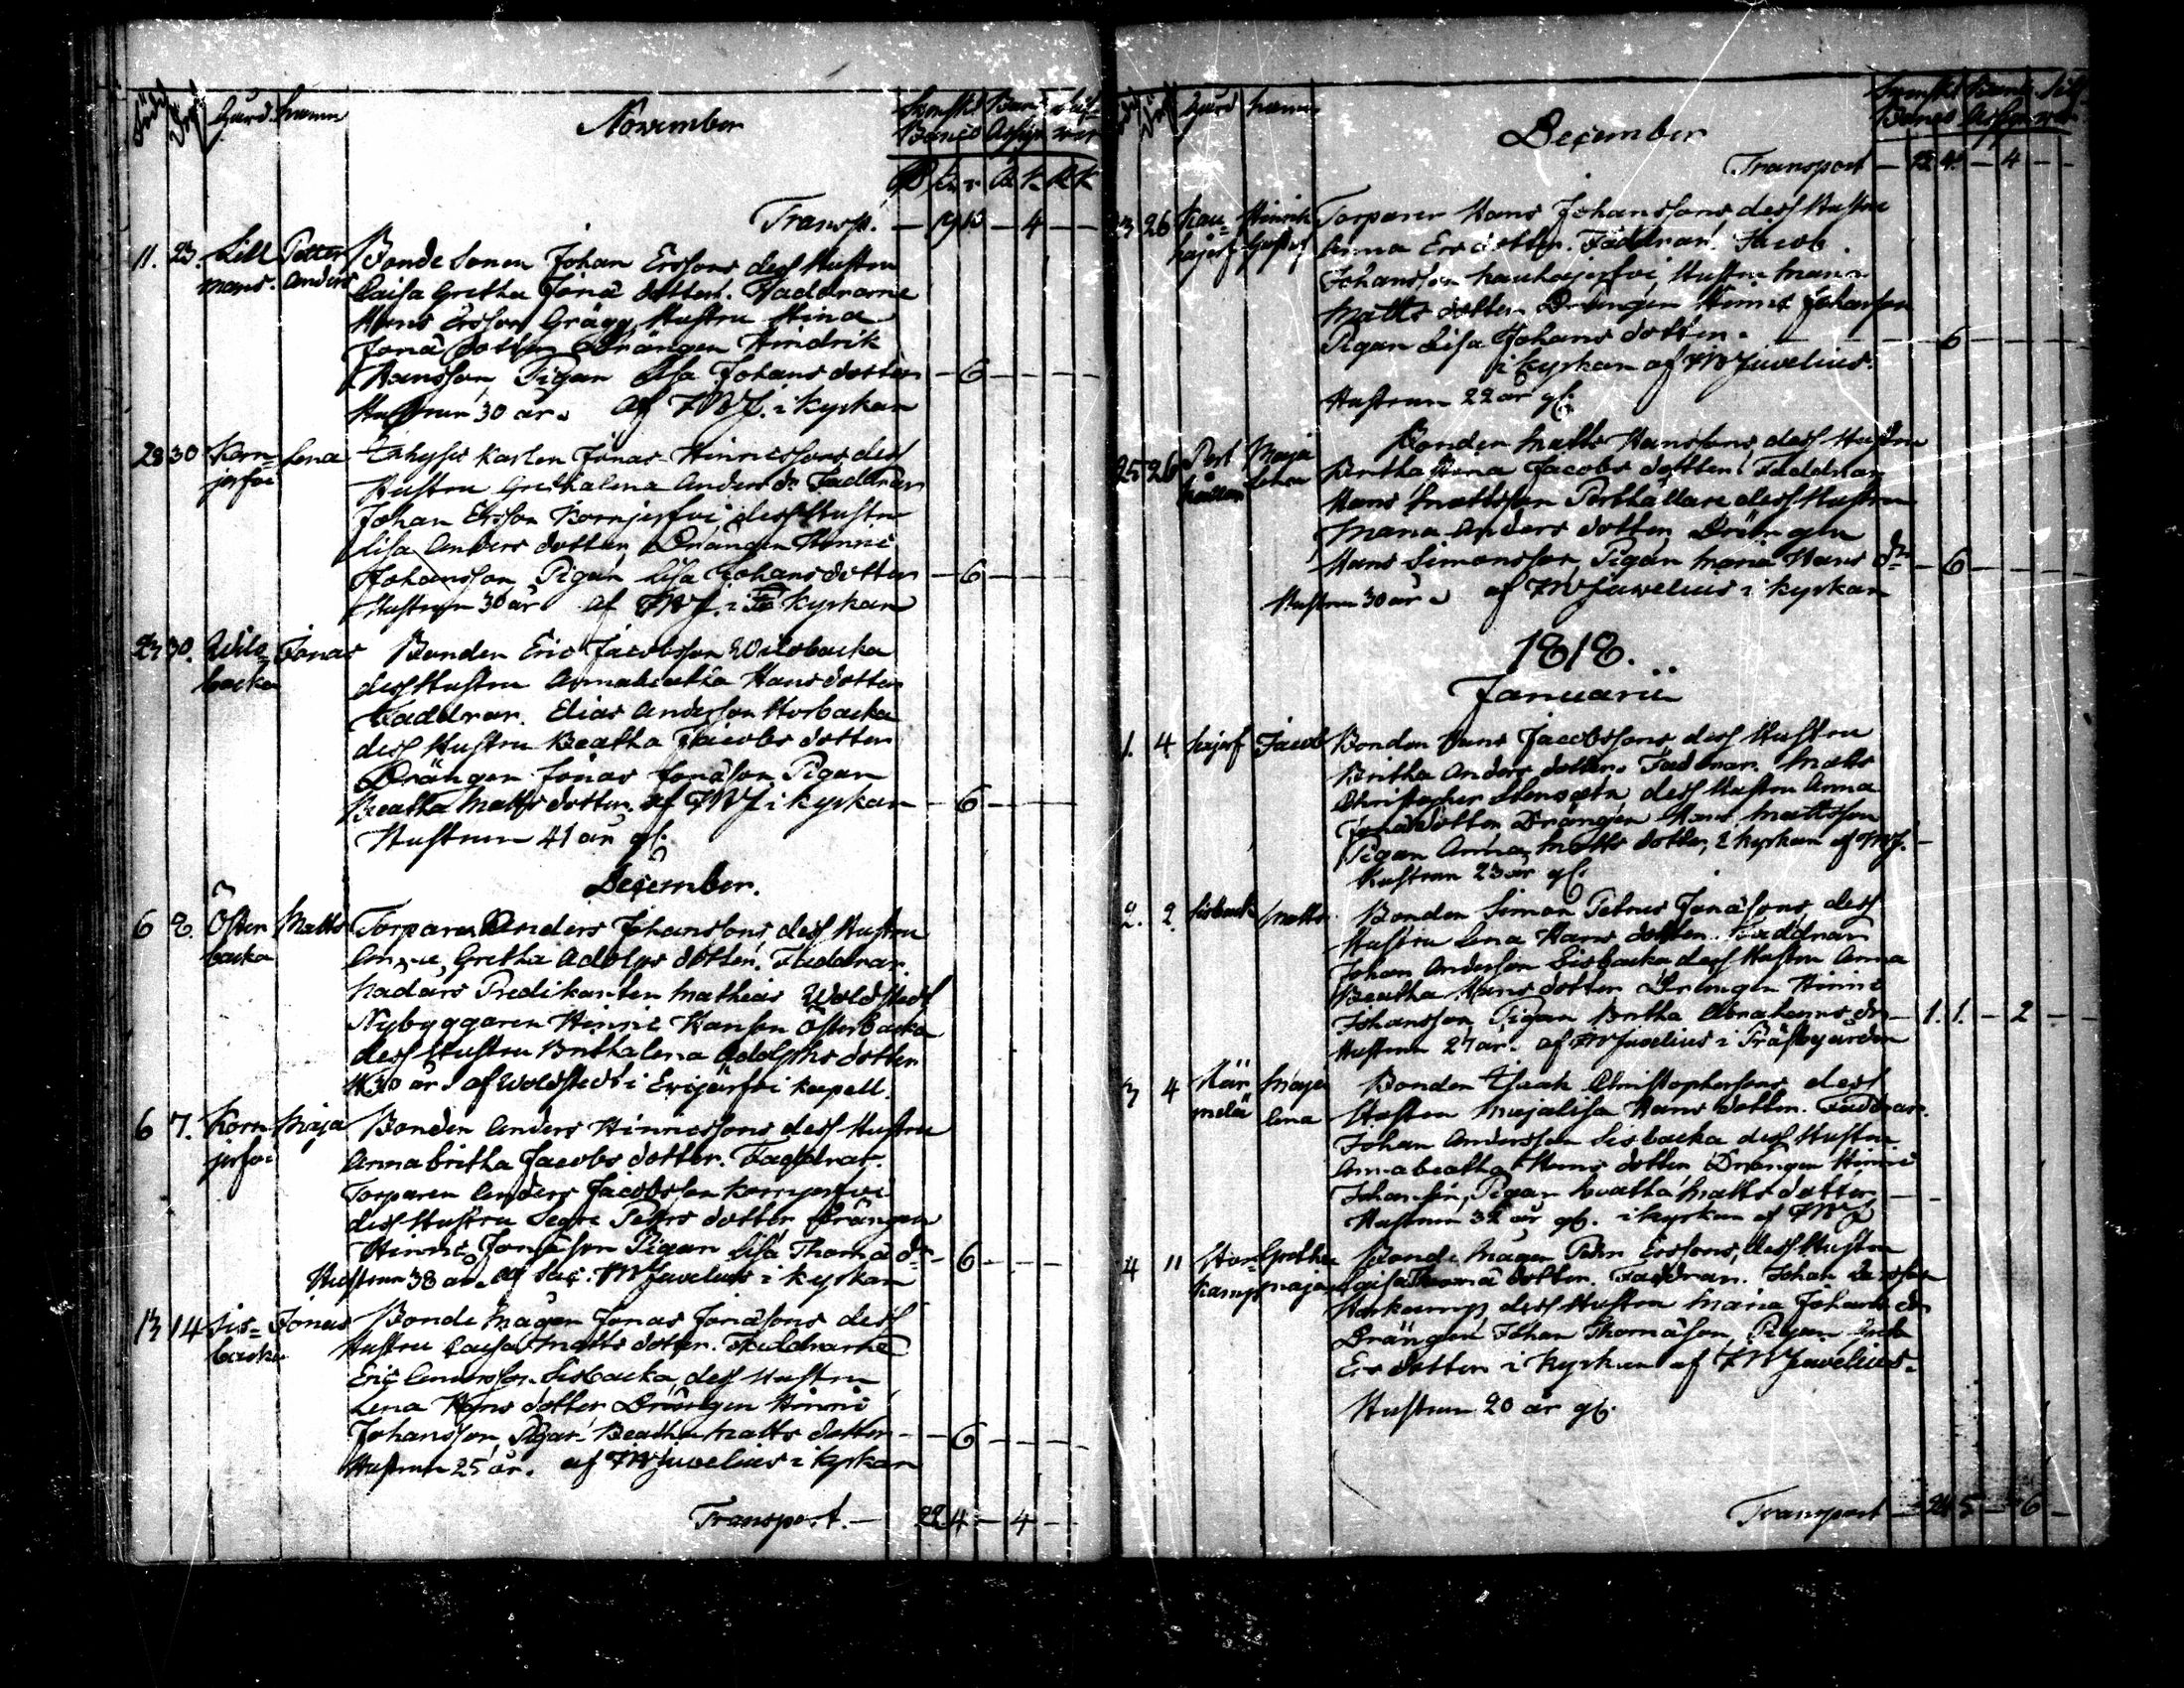 Född Döpt Gård Namn November Svenskt Banco Banc Assign Silfver
Transp. — 19 13 — 4 — —
11. 23. Lill Petter Bonde Sonen Johan Erssons dess Hustru
mans. Anders Caisa Gretha Jonä dotter. Faddrarne
Hans Ersson Grägg, Hustru Stina
Jonä dotter Drängen Hindrik
Hansson, Pigan Lisa Johans dotter — 6 — — —
Hustrun 30 år. af FWJ. i Kyrkan
28 30 Korn= Lena Inhyses Karlen Jonas Hinricssons dess
jerfvi Hustru Grethalena Anders dr Faddrar
Johan Ersson Kornjerfvi, dess Hustru
Lisa Anders dotter, Drängen Hinric
Johansson, Pigan Lisa Johans dotter — 6 — — —
Hustrun 30 år af FWJ. i Kyrkan
23 30. Wilo= Jonas Bonden Eric Jacobsson Wilobacka
backa dess Hustru Annabeatha Hans dotter
Faddrar. Elias Andersson Storbacka
dess Hustru Beatha Jacobs dotter
Drängen Jonas Jonäson Pigan
Beatha Matts dotter. af FWJ i Kyrkan — 6 — — —
Hustrun 41 år gl.
December.
6 8. Öster Matts Torparen Anders Johanssons, dess Hustru
backa Anna Gretha Adolphs dotter. Faddrar.
Nådårs Predikanten Mathias Woldstedt
Nybyggaren Hinric Hanson Österbacka
dess Hustru Brithalena Adolphs dotter
H. 30 år. af Woldstedt i Evijärfvi Kapell.
6 7. Korn Maja Bonden Anders Hinricssons dess Hustru
jerfvi Annabritha Jacobs dotter. Faddrar.
Torparen Anders Jacobsson Kornjerfvi
dess Hustru Segre Petters dotter, Drängen
Hinric Jonäson Pigan Lisa Thomä dr — 6 — — —
Hustrun 38 år. af Sac. FWJuvelius i Kyrkan
13 14 Sis= Jonas Bonde Mågen Jonas Jonäsons dess
backa Hustru Caisa Matts dotter. Faddrarne
Eric Andersson Sisbacka, dess Hustru
Lena Hans dotter, Drängen Hinric
Johansson, Pigan Beatha Matts dotter — 6 — — —
Hustrun 25 år. af FWJuvelius i Kyrkan
Transport. — 22 4 — 4 — —
Född Döpt Gård Namn December Svenskt Banco Banc Assign Silfver
Transport — 22 4. — 4 — —
23 26 Kau= Hinrik Torparen Hans Johanssons, dess Hustru
hajerf Gustaf Anna Ers dotter. Faddrar. Jacob
Johansson Kauhajerfvi, Hustru Maria
Matts dotter Drängen Hinric Johansson
Pigan Lisa Johans dotter. — — — 6 — — —
i Kyrkan af FWJuvelius.
Hustrun 22 år gl.
25 26 Pert Maja Bonden Matts Hanssons, dess Hustru
hållare Lena Britha Stina Jacobs dotter. Faddrar
Hans Mattsson Perthållare dess Hustru
Maria Anders dotter, Drängen
Hans Simonsson, Pigan Maria Hans dr — 6 — — —
Hustrun 30 år. af FWJuvelius i Kyrkan
1818.
Januarii
1. 4 Kajerf Jacob Bonden Hans Jacobssons, dess Hustru
Britha Anders dotter. Faddrar. Matts
Christopher Stensäta, dess Hustru Anna
Jonä dotter, Drängen Hans Mattsson
Pigan Anna Matts dotter, i Kyrkan af FWJ. —
Hustrun 23 år gl.
2. 2. Sisback Matts Bonden Simon Petrus Jonäsons, dess
Hustru Lena Hans dotter. Faddrar
Johan Andersson Sisbacka dess Hustru Anna
Beatha Hans dotter Drängen Hinric
Johansson, Pigan Britha Abrahams dr — 1. 1. — 2 — —
Hustrun 27 år. af FWJuvelius i Prästgården
3 4 Här Maja Bonden Isaak Christophersons dess
mälä lena Hustru Majalisa Hans dotter. Faddrar.
Johan Andersson Sisbacka dess Hustru
Annabeatha Hans dotter Drängen Hinric
Johansson, Pigan beatha Matts dotter — —
Hustrun 32 år gl. i Kyrkan af FWJ
4 11 Stor= Gretha Bonde Mågen Pehr Erssons, dess Hustru
kamp maja Caisa Thomä dotter. Faddrar. Johan Ersson
Storkamp, dess Hustru Maria Johans dr
Drängen Johan Thomäson, Pigan
Ers dotter i Kyrkan af FWJuvelius.
Hustrun 20 år gl.
Transport — 24 5 — 6 —